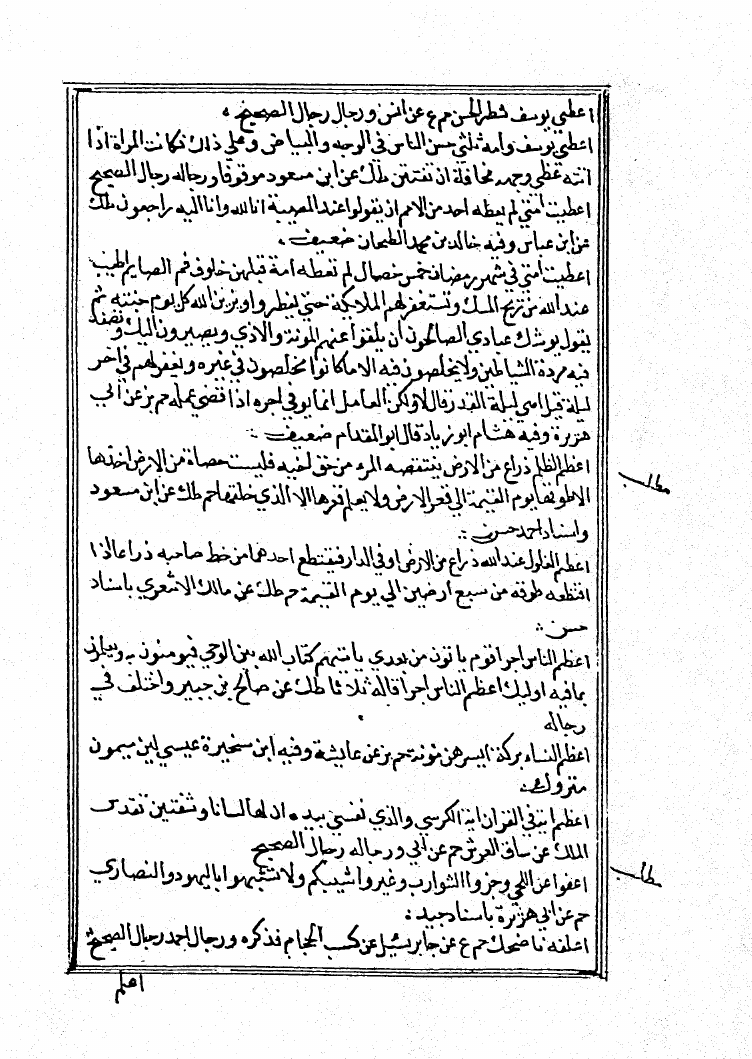 اعطي يوسف شطر الحسن حم ع عن انس ورجاله رجال الصحيح .
اعطي يوسف وامه ثلثي حسن الناس في الوجه والبياض وعلي ذلك فكانت المراة اذا
اتته غطي وجهه مخافة ان تفتتن طك عن ابن مسعود موقوفا ورجاله رجال الصحيح
اعطيت امتي لم يعطه احد من الامم ان يقولوا عند المصيبة انا لله وانا اليه راجعون طك
عن ابن عباس وفيه خالد بن محمد الطحان ضعيف .
اعطيت امتي في شهر رمضان خمس خصال لم تعطه امة قبلهن خلوف فم الصايم اطيب
عند الله من ريح المسك وتستغفر لهم الملايكة حتي يفطروا ويزين الله كل يوم جنته ثم
يقول يوشك عبادي الصالحون ان يلقوا عنهم المونة والاذي ويصيرون اليك وتصفد
فيه مردة الشياطين ولا يخلصون فيه الا ما كانوا يخلصون في غيره ويغفر لهم في اخر
ليلة قيل اهي ليلة القدر قال لا ولكن العامل انما يوفي اجره اذا قضي عمله حم بز عن ابي
هريرة وفيه هشام ابو زياد قال ابو المقدام ضعيف ..
اعظم الظلم ذراع من الارض ينتقصه المرء من حق اخيه فليست حصاة من الارض اخذها
الا طوقها يوم القيمة الي قعر الارض ولا يعلم قعرها الا الذي خلقها حم طك عن ابن مسعود
واسناد احمد حسن ..
اعظم الغلول عند الله ذراع من الارض او في الدار فيقتطع احدهما من خط صاحبه ذراعا اذا
اقتطعه طوقه من سبع ارضين الي يوم القيمة حم طك عن مالك الاشعري باسناد
حسن ..
اعظم الناس اجرا قوم ياتون من بعدي ياتيهم كتاب الله بين الوحي فيومنون به ويعملون
بما فيه اوليك اعظم الناس اجرا قاله ثلاثا طك عن صالح بن جبير واختلف في
رجاله
اعظم النساء بركة ايسرهن مونة حم بز عن عايشة وفيه ابن سخبرة عيسي ابن ميمون
متروك .
اعظم اية في القران اية الكرسي والذي نفسي بيده ان لها لسانا وشفتين تقدس
الملك عن ساق العرش حم عن ابي ورجاله رجال الصحيح
اعفوا عن اللحي وجزوا الشوارب وغيروا شيبكم ولا تشبهوا باليهود والنصاري
حم عن ابي هريرة باسناد جيد .
اعلفه ناضحك حم ع عن جابر سيل عن كسب الحجام فذكره ورجال احمد رجال الصحيح
مطلب
مطلب
اعلم